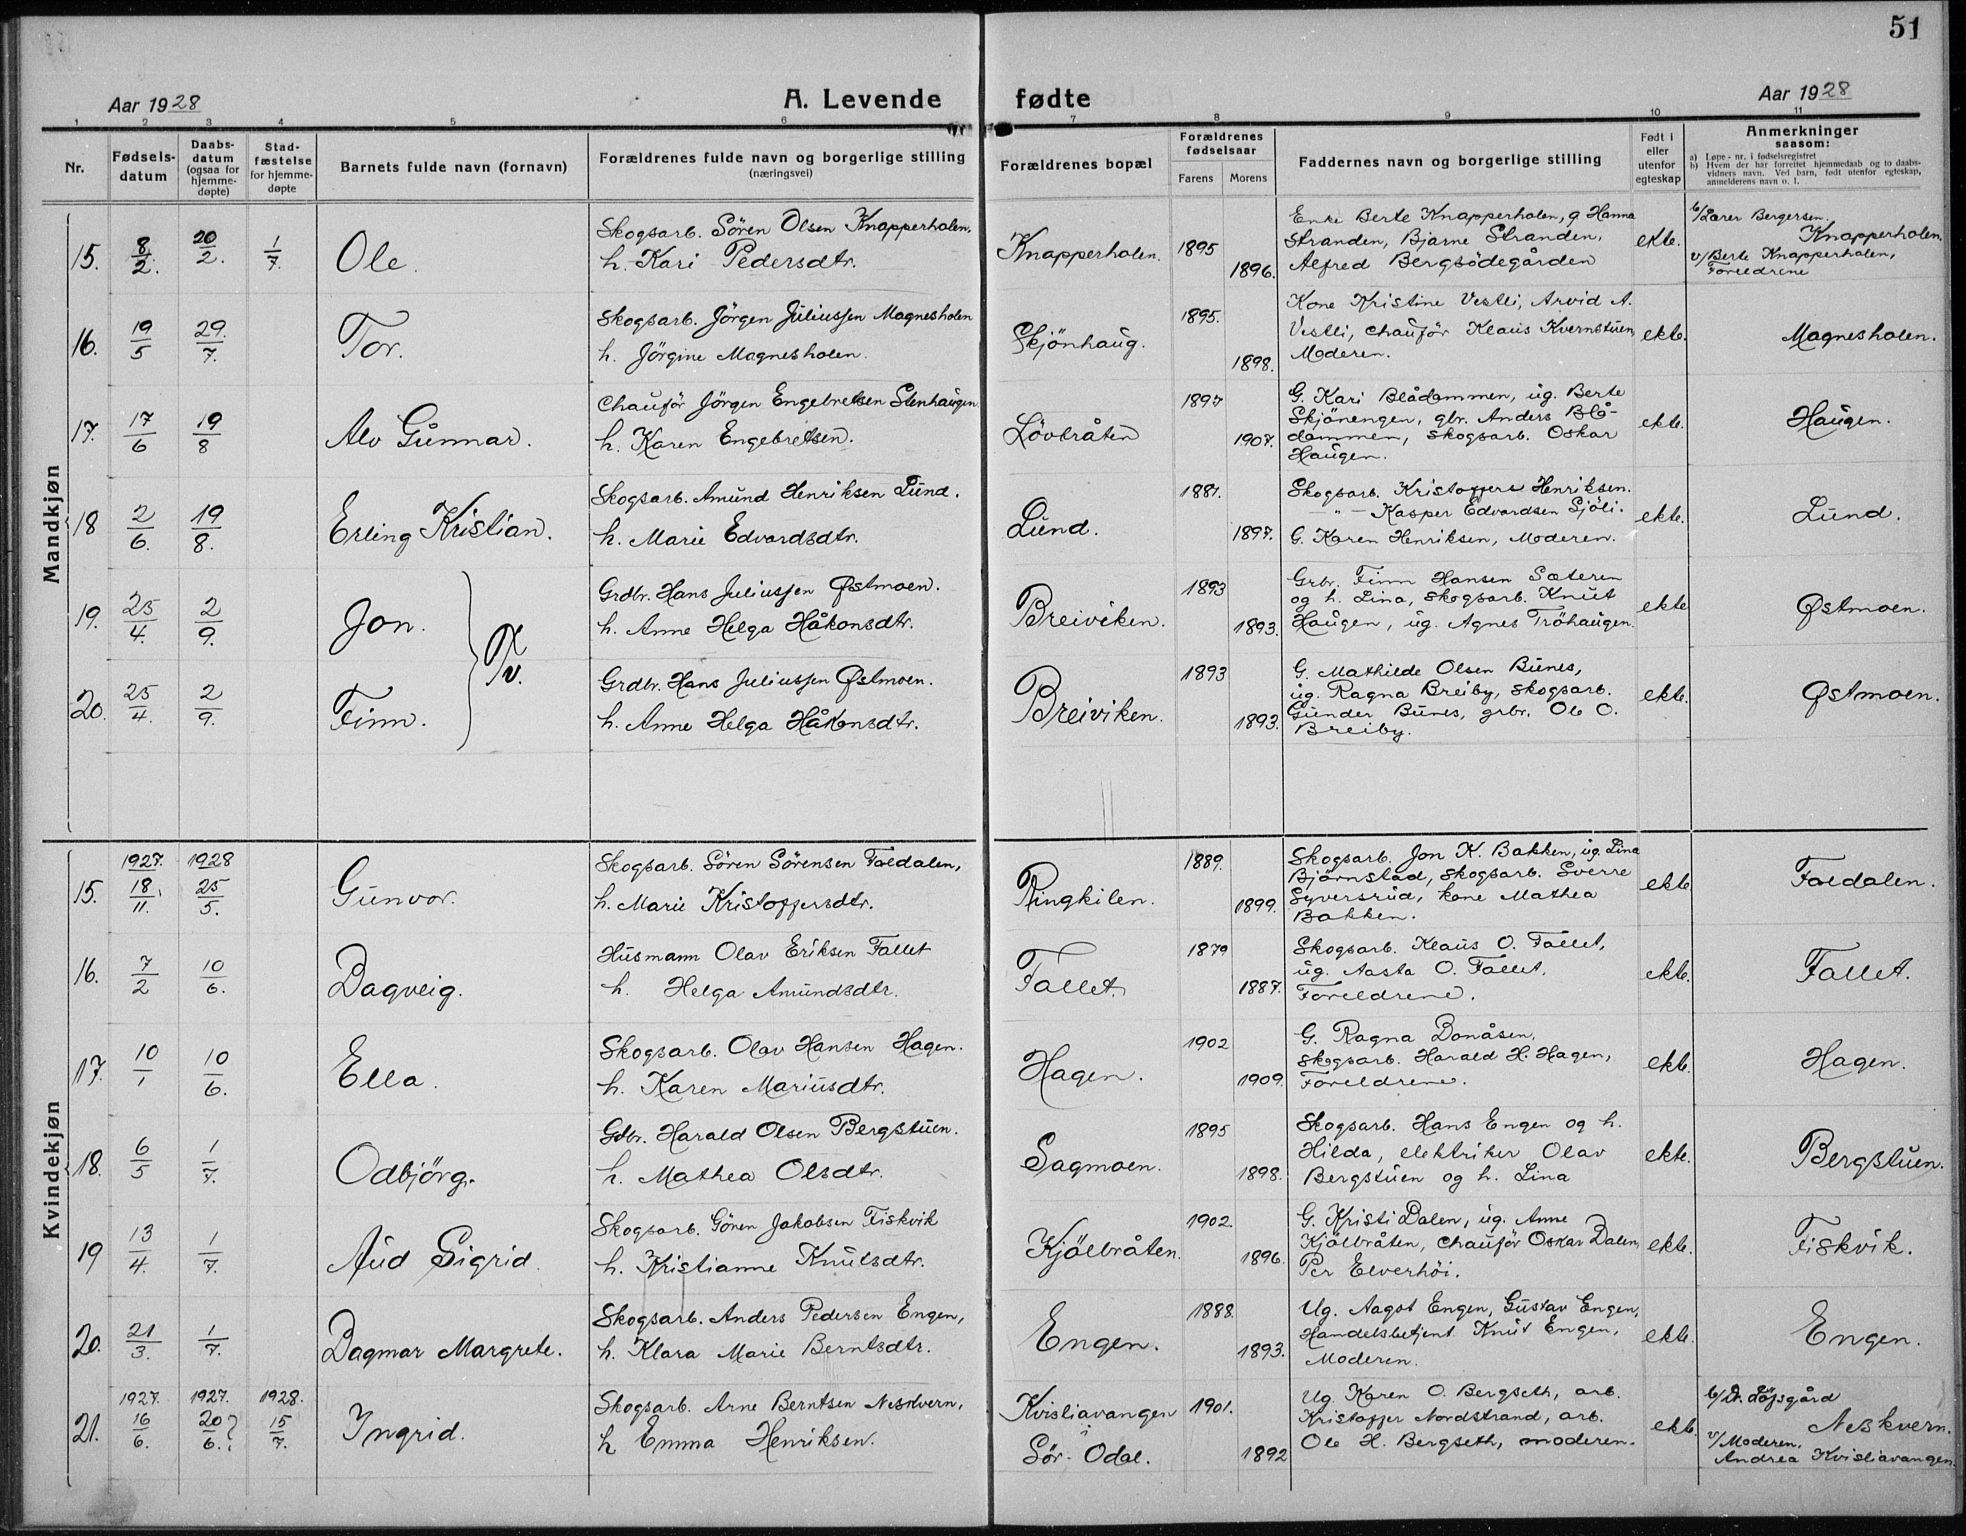 51
Aar 1928
A. Levende fødte
Aar 1928
1 2 3 4 5 6 7 8 9 10 11
Nr.
Fødsels-
datum
Daabs-
datum
(ogsaa for
hjemme-
døpte)
Stad-
fæstelse
for hjemme-
døpte
Barnets fulde navn (fornavn)
Forældrenes fulde navn og borgerlige stilling
(næringsvei)
Forældrenes bopæl
Forældrenes
fødselsaar
Farens
Morens
Faddernes navn og borgerlige stilling
Født i
eller
utenfor
egteskap
Anmerkninger
saasom:
a) Løpe-nr. i fødselsregistret
b) Hvem der har forrettet hjemmedaab og to daabs-
vidners navn. Ved barn, født utenfor egteskap,
anmelderens navn o. l.
Mandkjøn
15. 8/2. 20/2. 1/7. Ole.
Skogsarb. Sören Olsen Knapperholen,
h. Kari Pedersdtr.
Knapperholen. 1895 1896.
Enke Berte Knapperholen, g Hanna
Stranden, Bjarne Stranden,
Alfred Bergsödegården
ekte.
b/Lærer Bergersen.
Knapperholen.
v/Berte Knapperholen,
Foreldrene
16. 19/5 29./7. Tor.
Skogsarb. Jörgen Juliussen Magnesholen
h. Jörgine Magnesholen.
Skjönhaug. 1895. 1898.
Kone Kristine Vestli, Arvid A.
Vestli, chauför Klaus Kvernstuen,
Moderen.
ekte.
Magnesholen.
17. 17/6 19/8 Alv Gunnar.
Chauför Jörgen Engebretsen Stenhaugen
h. Karen Engebretsen.
Lövbråten 1897 1907.
G. Kari Blådammen, ug. Berte
Skjönengen, gbr. Anders Blå-
dammen, skogsarb. Oskar
Haugen.
ekte.
Haugen.
18 2/6. 19/8. Erling Kristian.
Skogsarb. Amund Henriksen Lund.
h. Marie Edvardsdtr.
Lund. 1881. 1897.
Skogsarb. Kristoffer Henriksen.
— " — Kasper Edvardsen Sjöli.
G. Karen Henriksen, Moderen.
ekte.
Lund.
19. 25/4. 2/9. Jon. } Tv.
Grdbr. Hans Juliussen Østmoen.
h. Anne Helga Håkonsdtr.
Breiviken. 1893 1893.
Grbr. Finn Hansen Sæteren
og h. Lina, skogsarb. Knut
Haugen, ug. Agnes Tröhaugen.
ekte
Østmoen.
20. 25/4. 2/9. Finn.
Grdbr. Hans Juliussen Østmoen.
h. Anne Helga Håkonsdtr.
Breiviken. 1893 1893.
G. Mathilde Olsen Bunes,
ug. Ragna Breiby, skogsarb.
Gunder Bunes, grbr. Ole O.
Breiby.
ekte.
Østmoen.
Kvindekjøn
15. 1927. 18/11. 1928 25/5. Gunvor.
Skogsarb. Sören Sörensen Foldalen,
h. Marie Kristoffersdtr.
Ringkilen. 1889. 1899.
Skogsarb. Jon K. Bakken, ug. Lina
Björnstad, skogsarb. Sverre
Syversrud, kone Mathea
Bakken.
ekte
Foldalen.
16. 7/2 10/6. Dagveig.
Husmann Olav Eriksen Fallet
h. Helga Amundsdtr.
Fallet. 1879 1887.
Skogsarb. Klaus O. Fallet,
ug. Aasta O. Fallet.
Foreldrene.
ekte.
Fallet.
17. 10/1 10/6. Ella.
Skogsarb. Olav Hansen Hagen.
h. Karen Mariusdtr.
Hagen. 1902 1909.
G. Ragna Bonåsen,
skogsarb. Harald H. Hagen,
Foreldrene.
ekte.
Hagen.
18. 6/5 1/7. Odbjörg.
Gdbr. Harald Olsen Bergstuen.
h. Mathea Olsdtr.
Sagmoen. 1895 1898.
Skogsarb. Hans Engen og h.
Hilda, elektriker Olav
Bergstuen og h. Lina
ekte.
Bergstuen.
19 13/4. 1/7. Aud Sigrid.
Skogsarb. Gören Jakobsen Fiskvik
h. Kristianne Knutsdtr.
Kjölbråten. 1902. 1896.
G. Kristi Dalen, ug. Anne
Kjölbråten, chauför Oskar Dalen,
Per Elverhöi.
ekte.
Fiskvik.
20. 21/3. 1/7. Dagmar Margrete.
Skogsarb. Anders Pedersen Engen,
h. Klara Marie Berntsdtr.
Engen. 1888. 1893.
Ug. Aagot Engen, Gustav Engen,
Handelsbetjent Knut Engen,
Moderen.
ekte.
Engen.
21. 1927. 16/6. 1927. 20/6.? 1928. 15/7. Ingrid.
Skogsarb. Arne Berntsen Neskvern,
h Emma Henriksen.
Kvisliavangen
i
Sör-Odal. 1901. 1892
Ug. Karen O. Bergseth, arb.
Kristoffer Nordstrand, arb.
Ole H. Bergseth, moderen.
ekte.
b/Dr. Löfsgård
Neskvern.
v/Moderen.
Andrea Kvisliavangen.